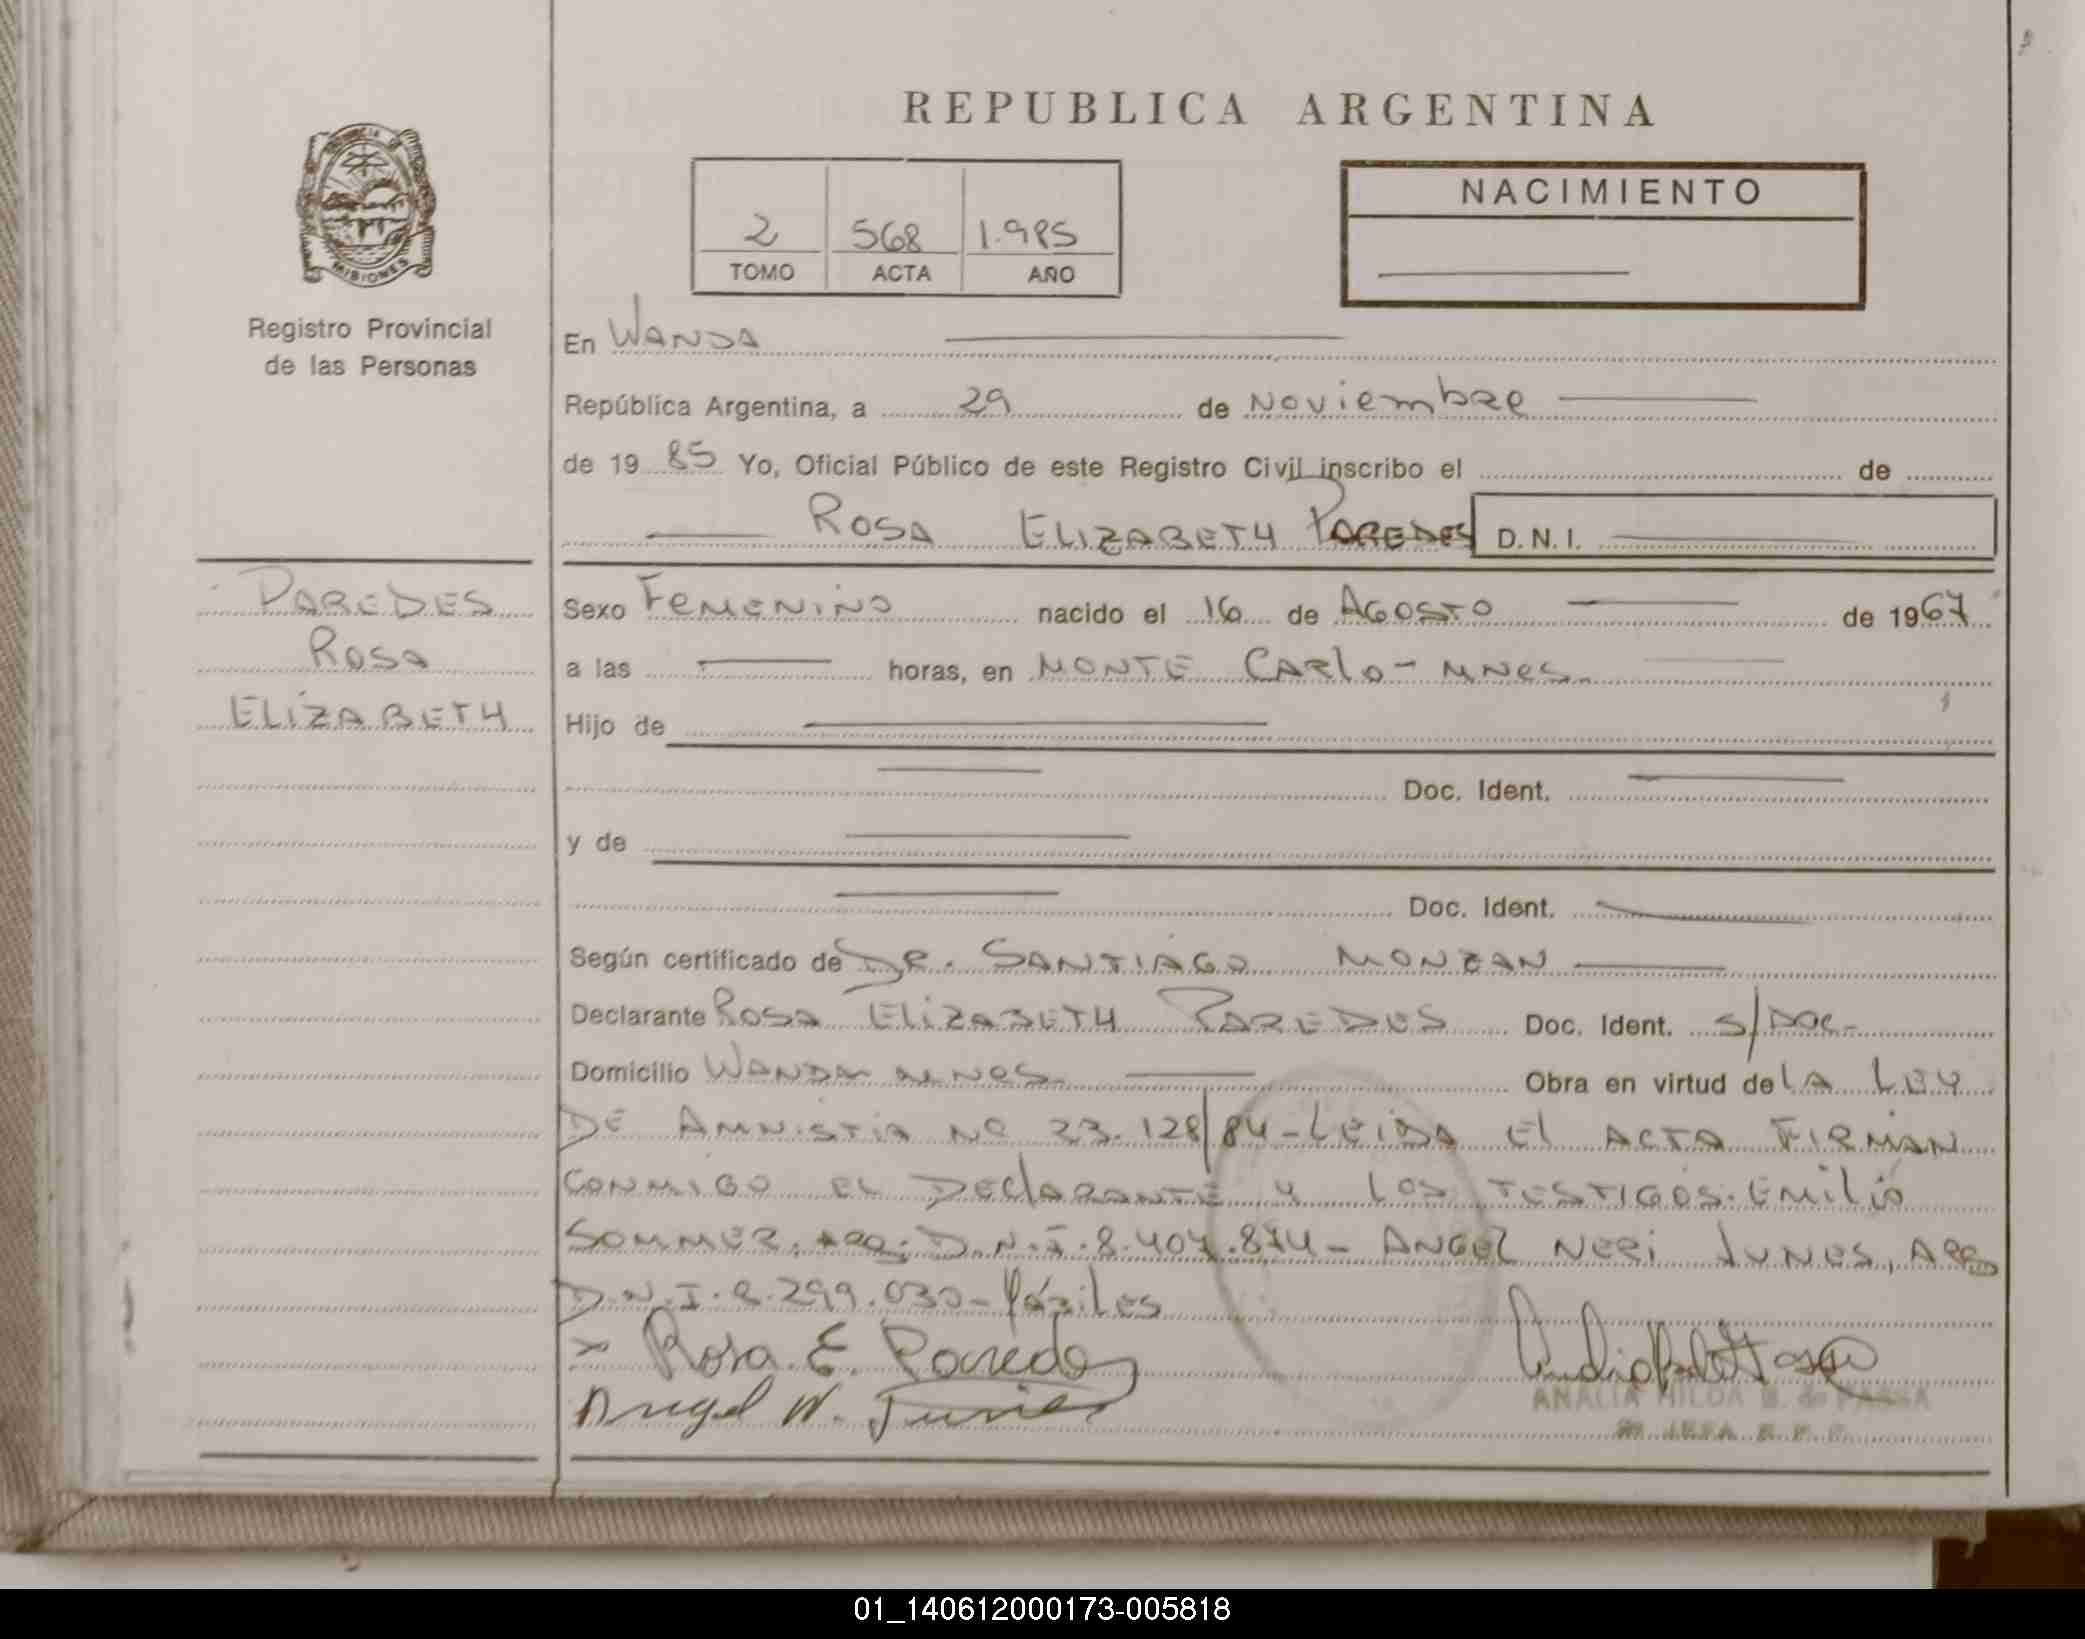 REPUBLICA ARGENTINA
MISIONES
Registro Provincial
de las Personas
2 568 1.985
TOMO ACTA AÑO
NACIMIENTO
En WANDA
República Argentina, a 29 de Noviembre
de 19 85 Yo, Oficial Público de este Registro Civil inscribo el de
ROSA ELIZABETH PAREDES D.N.I.
PAREDES
ROSA
ELIZABETH
Sexo Femenino nacido el 16 de AGOSTO de 1967
a las horas, en MONTE CARLO - MNES.
Hijo de
Doc. Ident.
y de
Doc. Ident.
Según certificado de DR. SANTIAGO MONZAN
Declarante ROSA ELIZABETH PAREDES Doc. Ident. S/DOC-
Domicilio WANDA MNES. Obra en virtud de LA LEY
DE AMNISTIA Nº 23.128/84 - LEIDA El ACTA FIRMAN
CONMIGO EL DEClARANTE Y LOS TESTIGOS. EMILIO
SOMMER, ARG. D.N.I. 8.407.874 - ANGEL NERI JUNES, ARG
D.N.I. 8.299.030 -
Rosa E. Paredes
Angel N. Junes
ANALIA HILDA